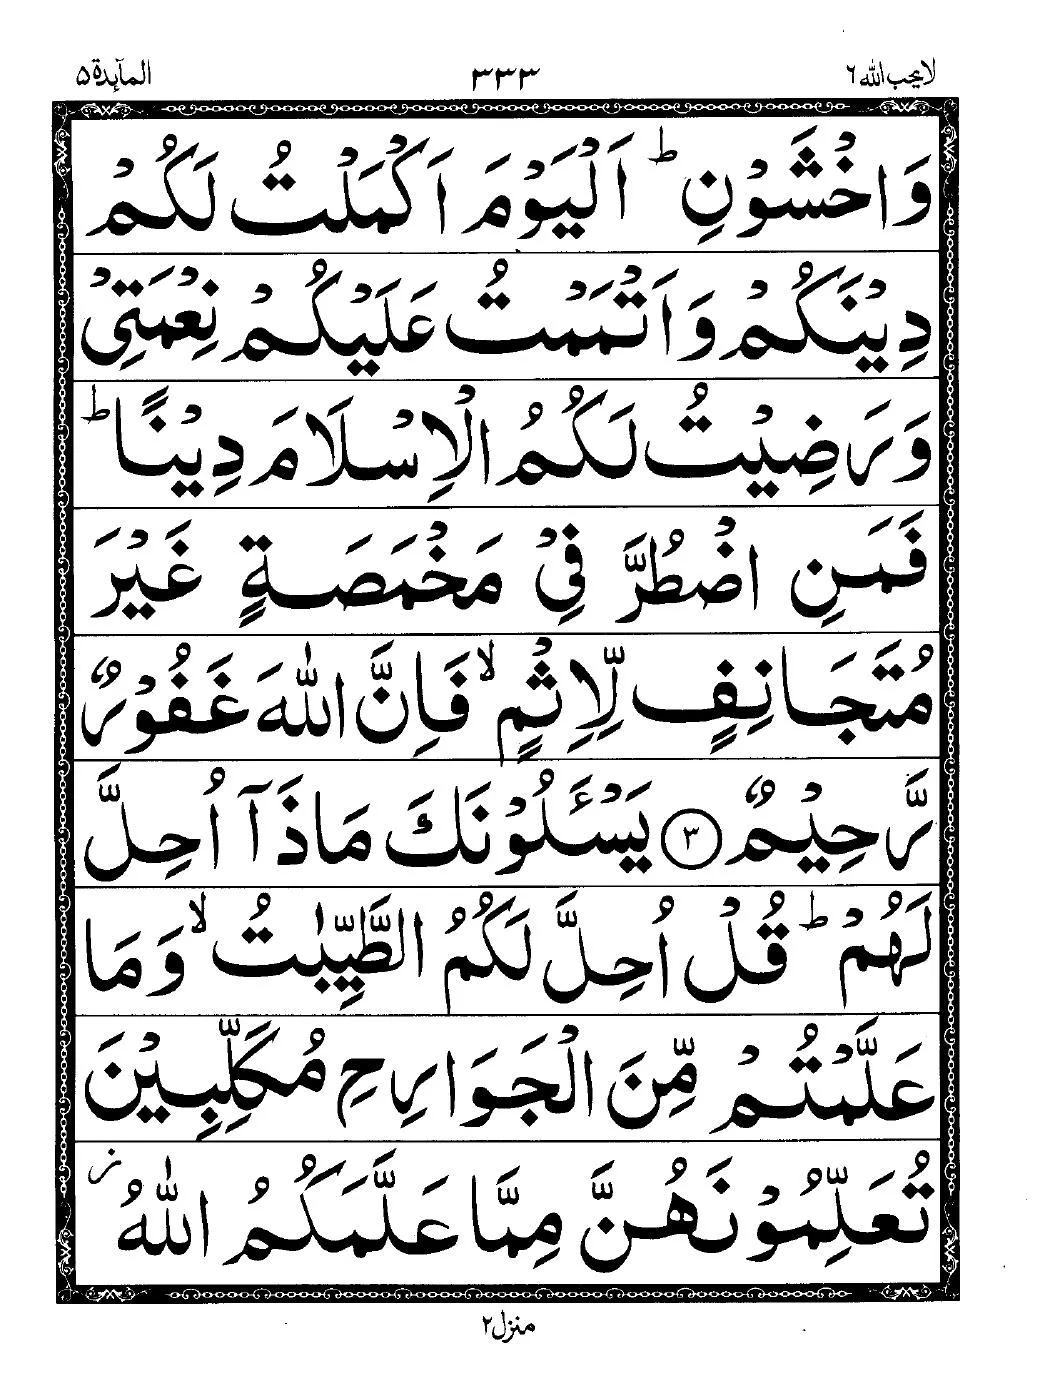 لا يحب الله ٦
٣٣٣
المآىٕدة ۵
وَاخْشَوْنِ ؕ اَلْيَوْمَ اَكْمَلْتُ لَكُمْ
دِيْنَكُمْ وَاَتْمَمْتُ عَلَيْكُمْ نِعْمَتِيْ
وَرَضِيْتُ لَكُمُ الْاِسْلَامَ دِيْنًا ؕ
فَمَنِ اضْطُرَّ فِيْ مَخْمَصَةٍ غَيْرَ
مُتَجَانِفٍ لِّاِثْمٍ ۙ فَاِنَّ اللّٰهَ غَفُوْرٌ
رَّحِيْمٌ ٣ يَسْـَٔلُوْنَكَ مَاذَآ اُحِلَّ
لَهُمْ ؕ قُلْ اُحِلَّ لَكُمُ الطَّيِّبٰتُ ۙ وَمَا
عَلَّمْتُمْ مِّنَ الْجَوَارِحِ مُكَلِّبِيْنَ
تُعَلِّمُوْنَهُنَّ مِمَّا عَلَّمَكُمُ اللّٰهُ ز
منزل ٢